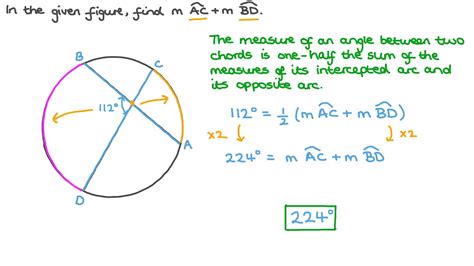 In the given figure, find m AC + m BD.
The measure of an angle between two
chords is one-half the sum of the
measures of its intercepted arc and
its opposite arc.
B
C
112°
A
D
112° = 1/2 (m AC + m BD)
×2 ×2
224° = m AC + m BD
224°